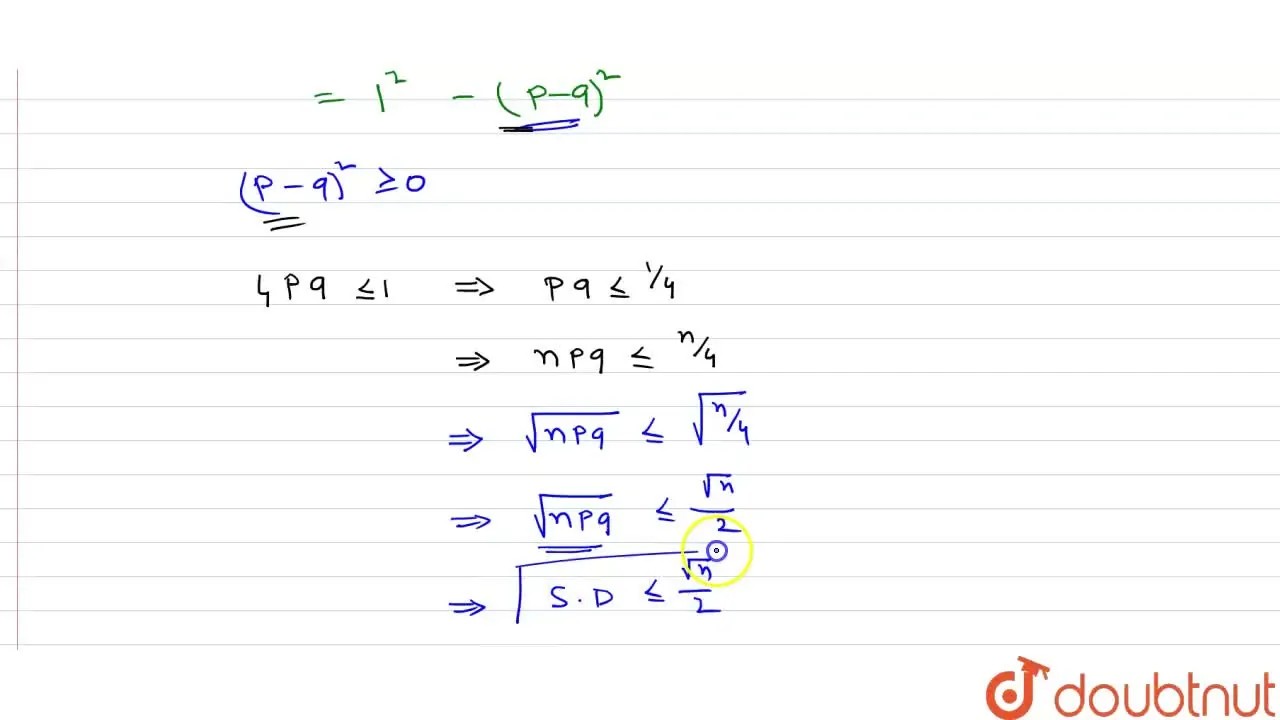 = 1² - (p-q)²
(p-q)² ≥ 0
4pq ≤ 1 ⇒ pq ≤ 1/4
⇒ npq ≤ n/4
⇒ √npq ≤ √n/4
⇒ √npq ≤ √n/2
⇒ S.D ≤ √n/2
doubtnut